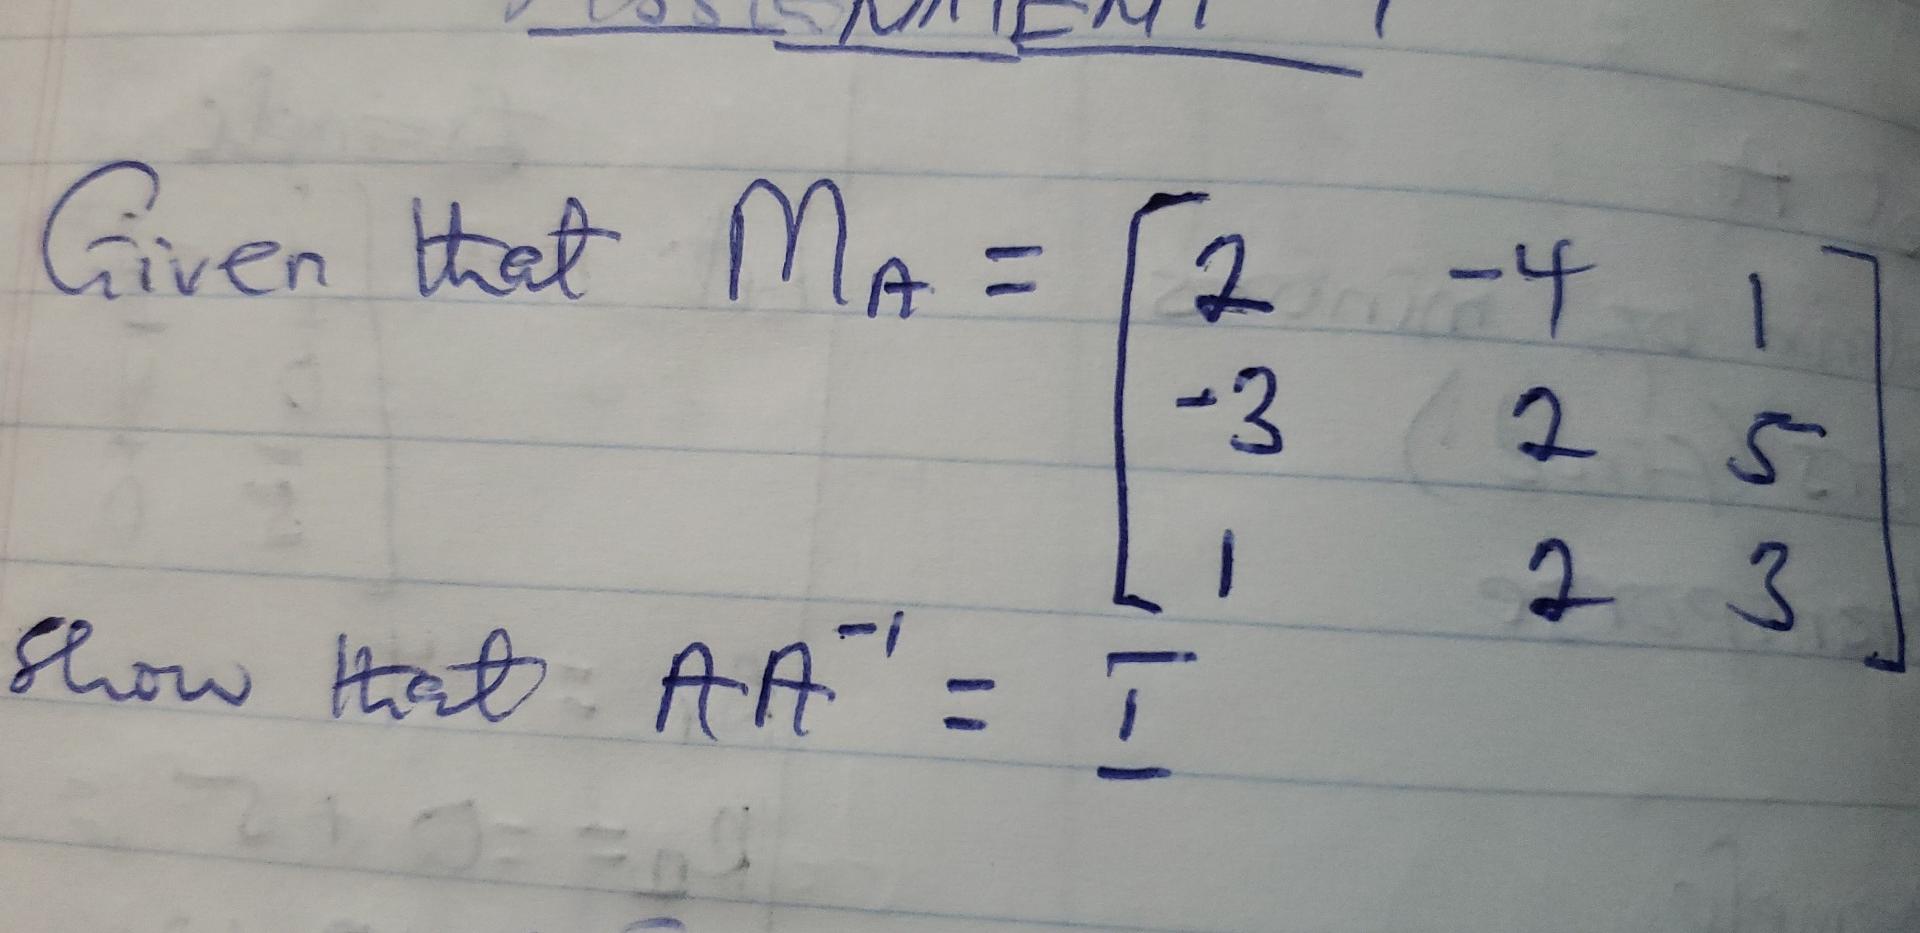 ASSIGNMENT 1
Given that M_A = [2 -4 1
-3 2 5
1 2 3]
Show that AA⁻¹ = I